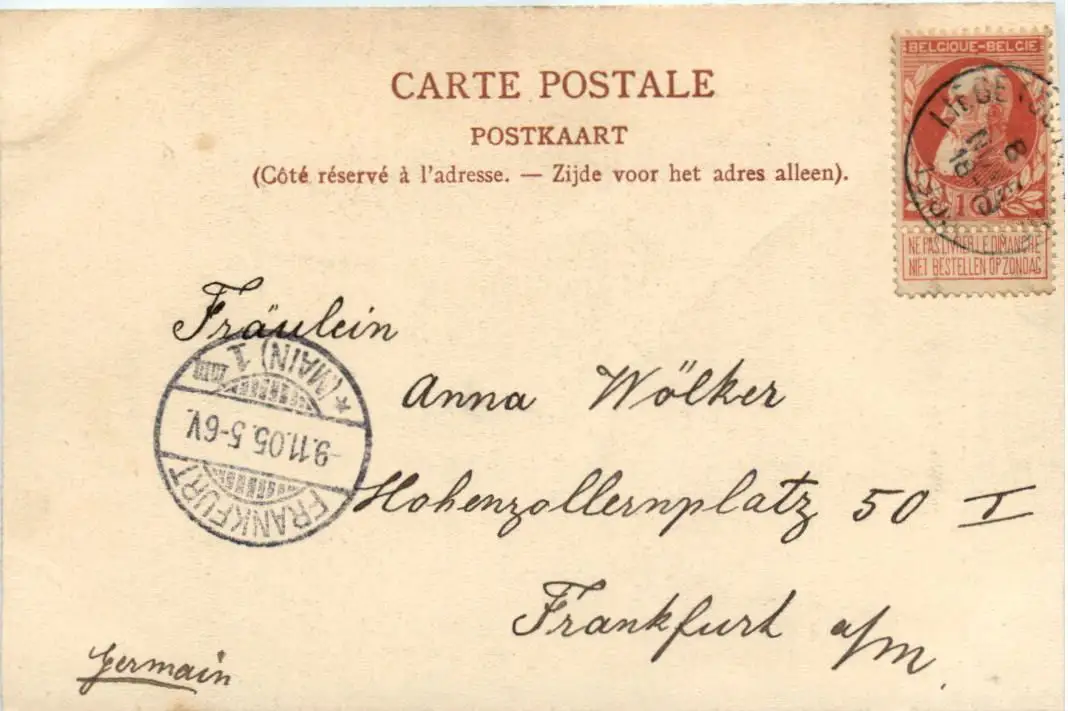 CARTE POSTALE
POSTKAART
(Côté réservé à l'adresse. — Zijde voor het adres alleen).
BELGIQUE-BELGIE
10
NE PAS LIVRER LE DIMANCHE
NIET BESTELLEN OP ZONDAG
LIÉGE
8
NOV
18
Fräulein
Anna Wölker
Hohenzollernplatz 50 I
Frankfurt a/M.
Germain
FRANKFURT
* (MAIN) 1
-9.11.05. 5-6V.